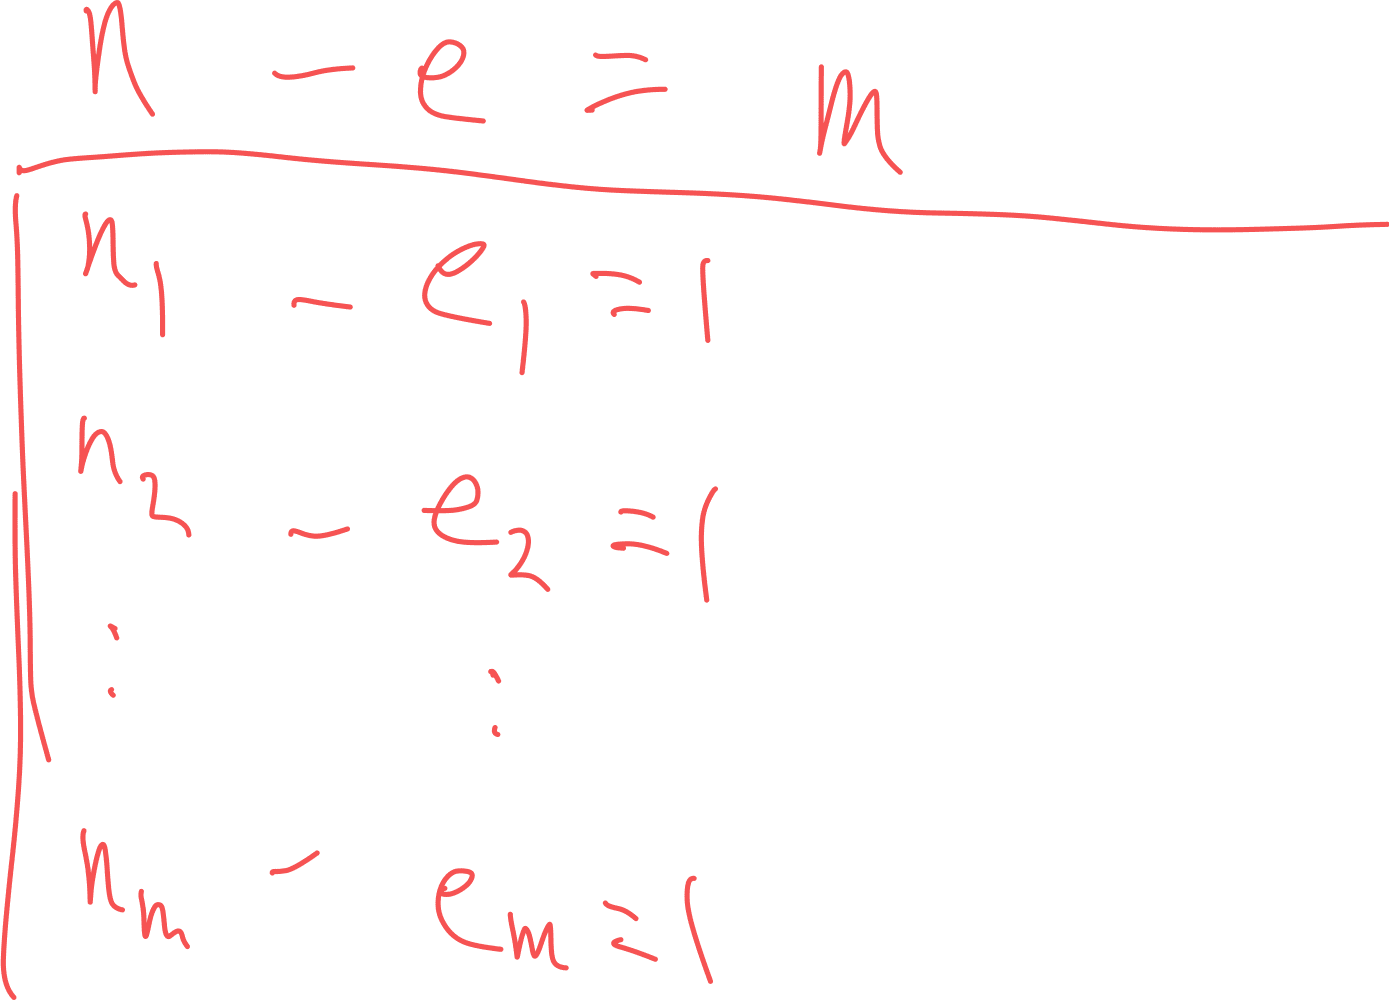 n - e = m
n₁ - e₁ = 1
n₂ - e₂ = 1
⋮ ⋮
nₘ - eₘ = 1